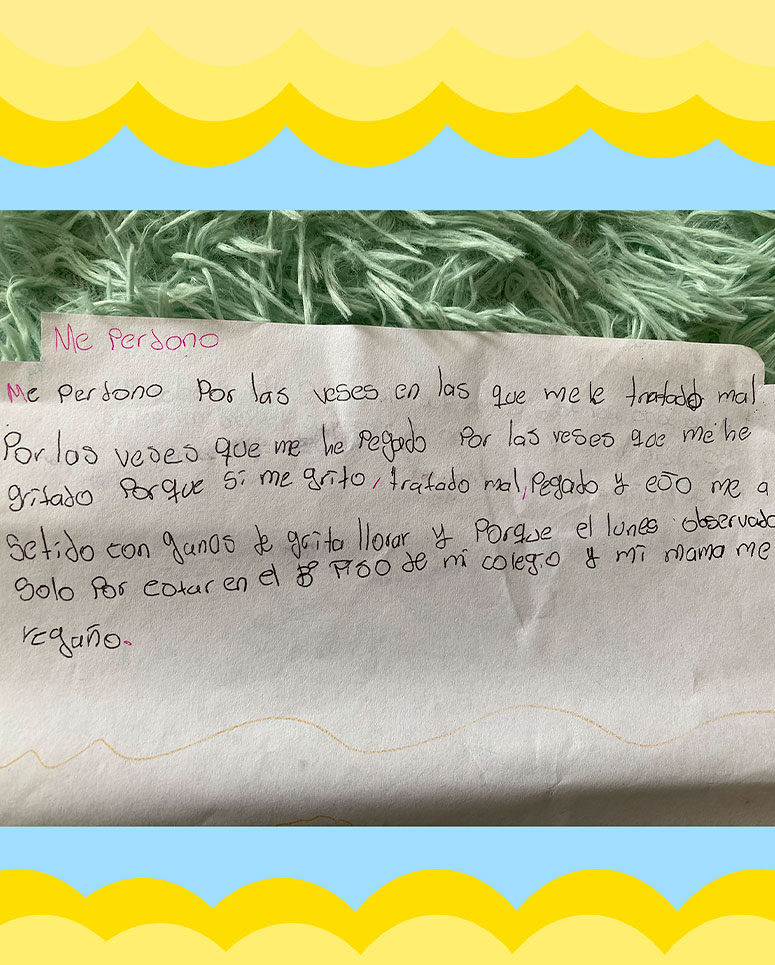 Me Perdono
Me Perdono Por las veses en las que me he tratado mal
Por las veses que me he Pegado Por las veses que me he
gritado Porque si me grito, tratado mal, Pegado y eso me a
setido con ganas de grita llorar y Porque el lunes observado
Solo Por estar en el PISO de mi colegio y mi mama me
regaño.